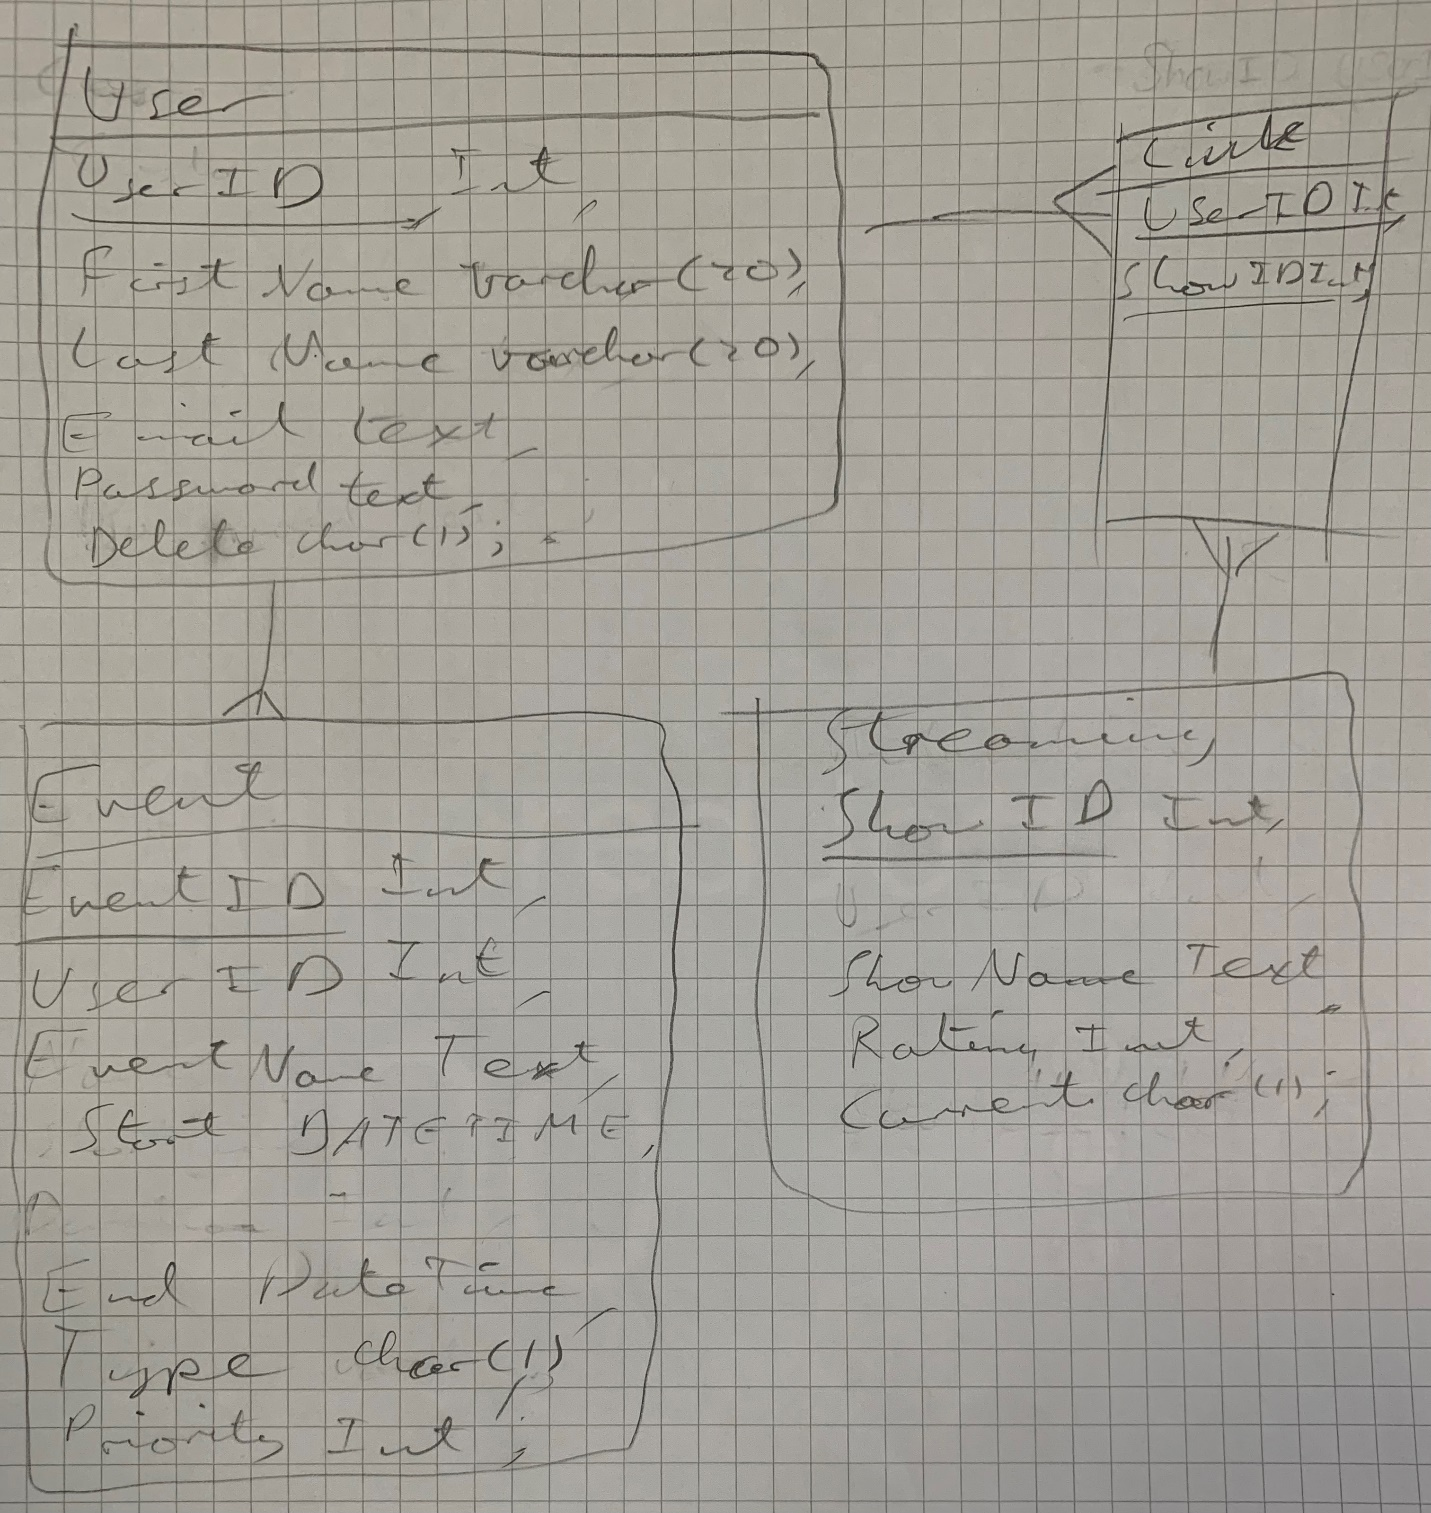 User
UserID Int,
First Name varchar(20),
Last Name varchar(20),
Email text,
Password text,
Delete char(1);
UserID Int
ShowID Int
Event
EventID Int,
UserID Int,
EventName Text,
Start DATETIME,
End DateTime,
Type char(1),
Priority Int;
Streaming
ShowID Int,
ShowName Text,
Rating Int,
Current char(1);